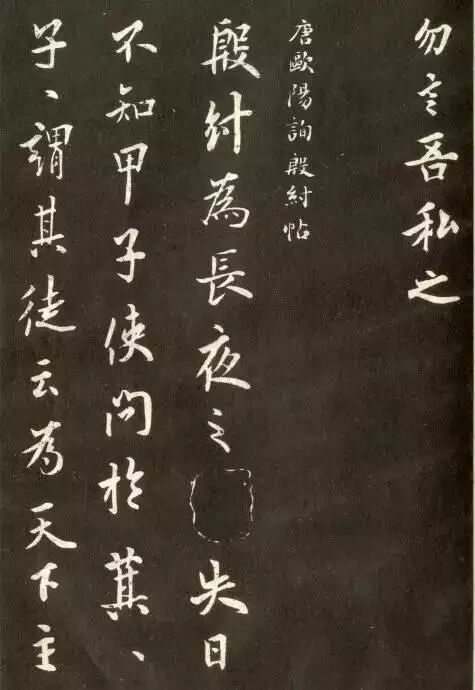 勿言吾私之
唐歐陽詢殷紂帖
殷紂為長夜之失日
不知甲子使問於萁、
子、謂其徒云為天下主